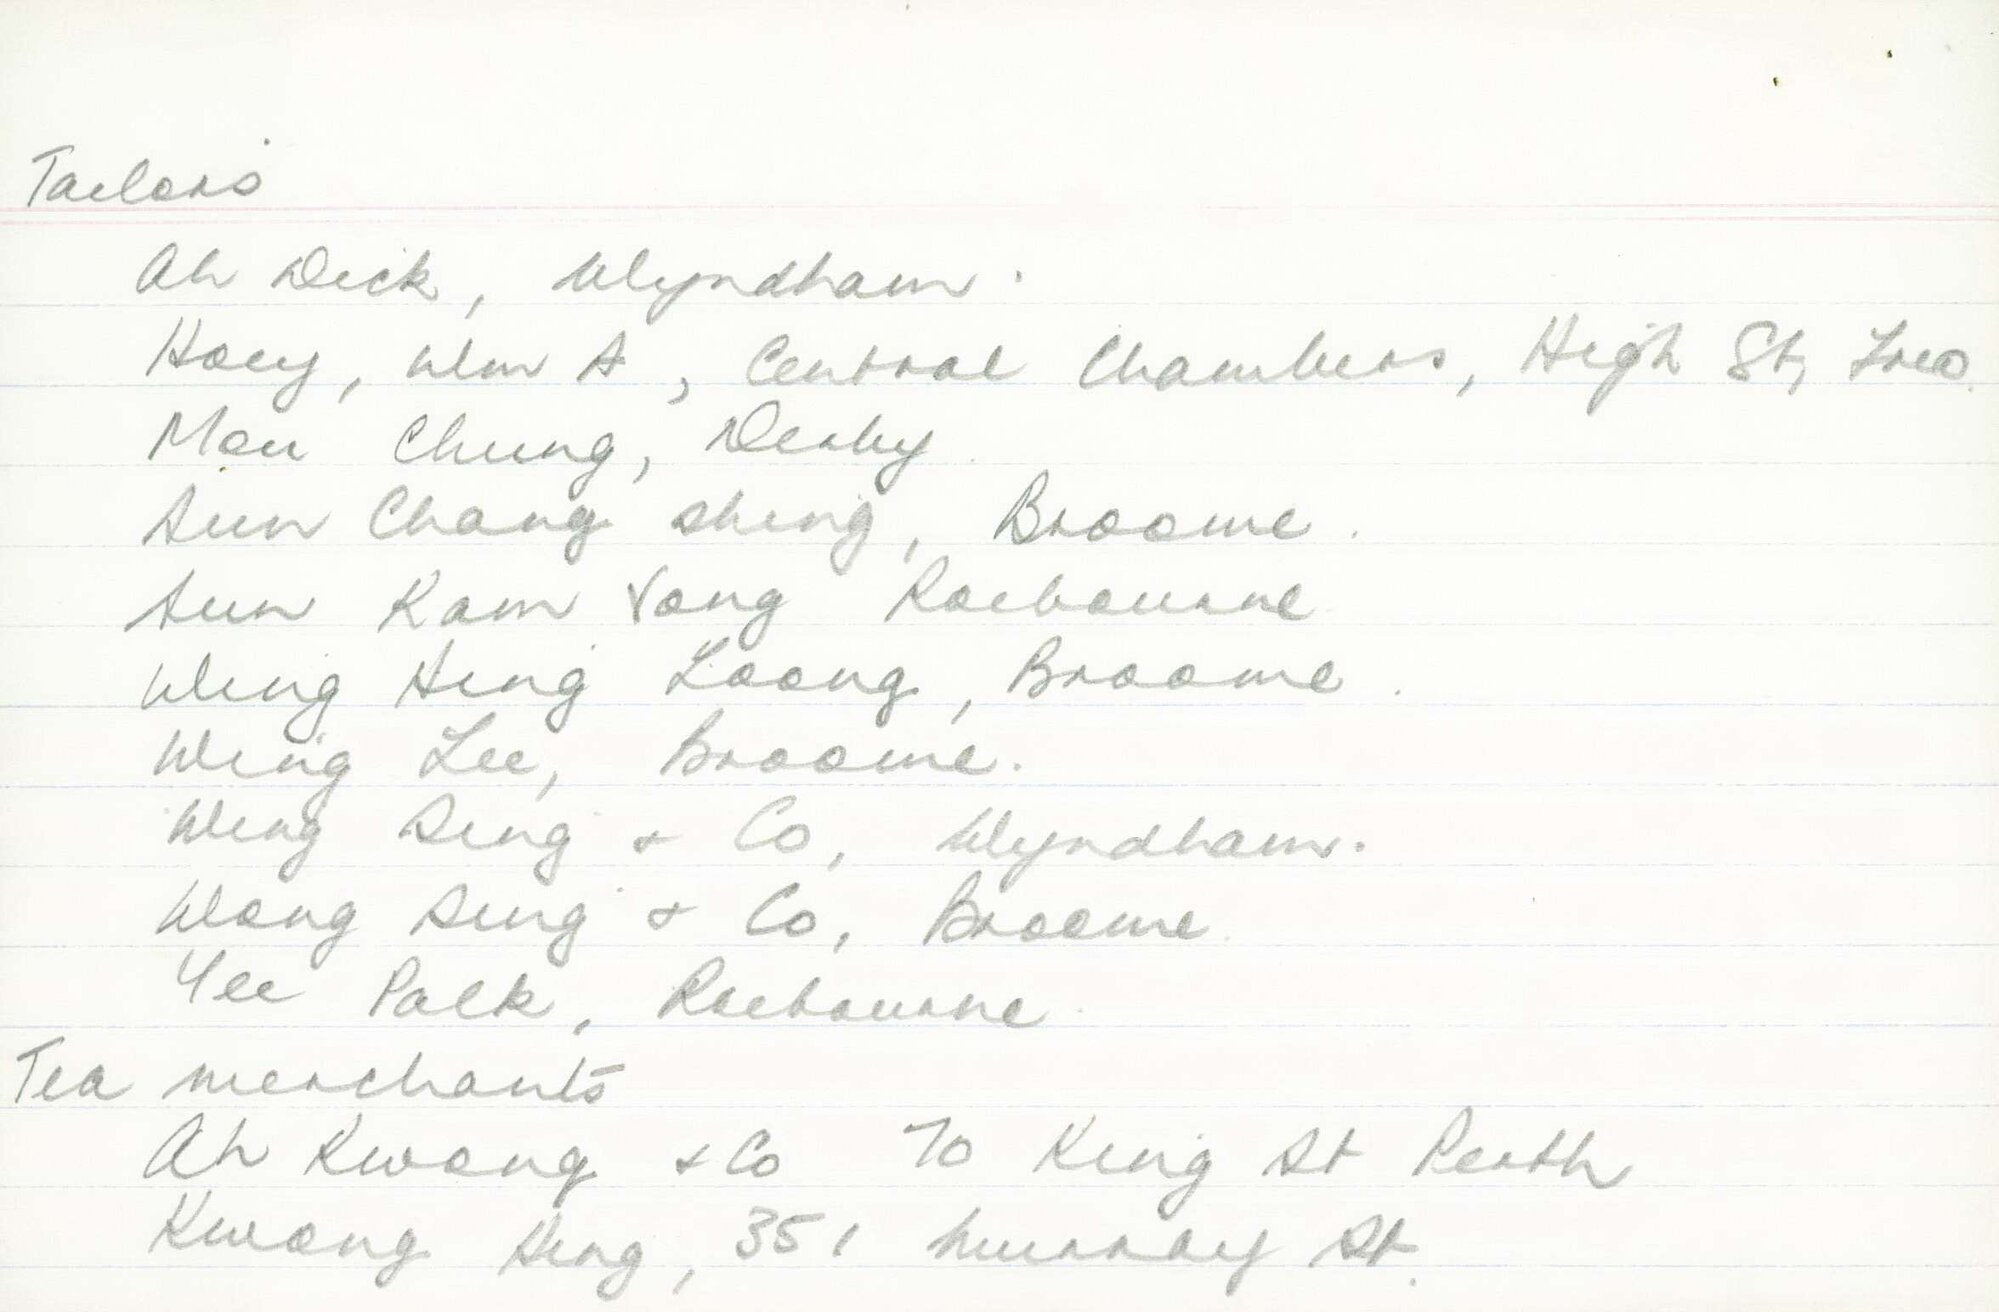 Tailors
Ah Dick, Wyndham.
Hoey, Wm A, Central Chambers, High St, Freo.
Mou Chung, Derby
Sun Chang Shing, Broome.
Sun Kam Yong Roebourne
Wing Hing Loong, Broome.
Wing Lee, Broome.
Wing Sing & Co, Wyndham.
Wong Sing & Co, Broome
Yee Palk, Roebourne
Tea merchants
Ah Kwong & Co 70 King St Perth
Kwong Sing, 351 Murray St.